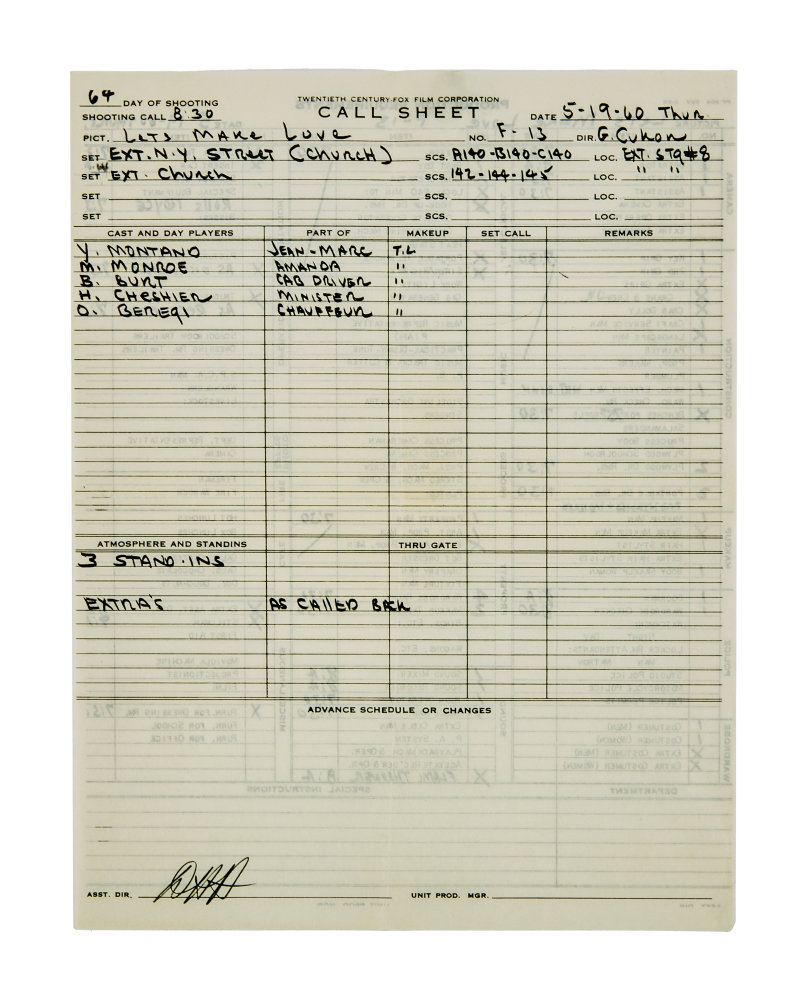 64 DAY OF SHOOTING
TWENTIETH CENTURY-FOX FILM CORPORATION
SHOOTING CALL 8:30 CALL SHEET DATE 5-19-60 Thur
PICT. Lets Make Love NO. F-13 DIR. G. Cukor
SET EXT. N.Y. STREET (CHURCH) SCS. A140-B140-C140 LOC. EXT. STG #8
SET EXT. Church SCS. 142-144-145 LOC. " "
SET SCS. LOC.
SET SCS. LOC.
CAST AND DAY PLAYERS PART OF MAKEUP SET CALL REMARKS
Y. MONTAND JEAN-MARC T.L
M. MONROE AMANDA "
B. BURT CAB DRIVER "
H. CHESHIER MINISTER "
O. BEREGI CHAUFFEUR "
ATMOSPHERE AND STANDINS THRU GATE
3 STAND-INS
EXTRA'S AS CALLED BACK
ADVANCE SCHEDULE OR CHANGES
ASST. DIR. UNIT PROD. MGR.